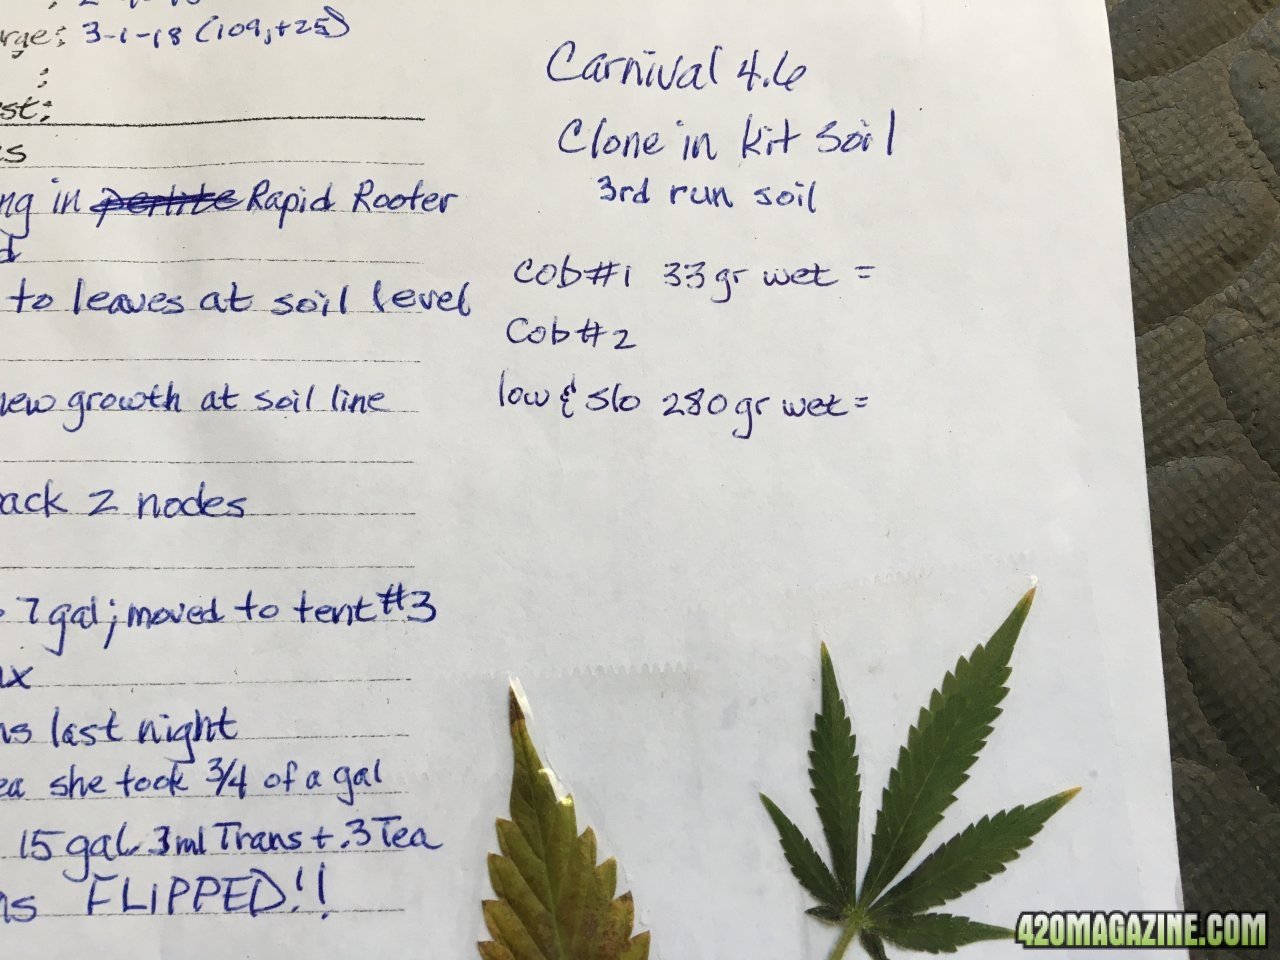 3-1-18 (109, +25)
in perlite Rapid Rooter
to leaves at soil level
new growth at soil line
back 2 nodes
7 gal; moved to tent #3
last night
she took 3/4 of a gal
15 gal .3ml Trans + .3 Tea
FLIPPED!!
Carnival 4.6
Clone in kit soil
3rd run soil
Cob #1 33 gr wet =
Cob #2
low & slo 280 gr wet =
420MAGAZINE.COM